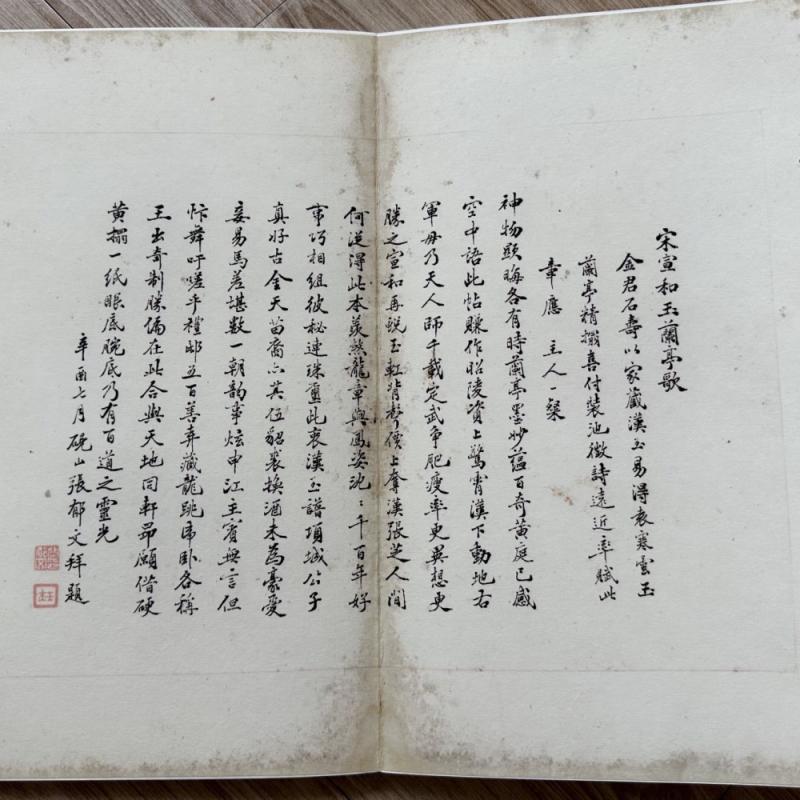 宋宣和玉蘭亭歌
金君石壽以家藏漢玉易得袁寒雲玉
蘭亭精搨喜付裝池徵詩遠近率賦此
章應 主人一粲
神物顯晦各有時蘭亭墨妙蘊百奇黄庭已感
空中語此帖賺作昭陵資上驚霄漢下動地右
軍毋乃天人師千載定武爭肥瘦率更異想更
勝之宣和再蜕玉缸背聲價上奪漢張芝人間
何從得此本羨煞龍章與鳳姿沈沈千百年好
事巧相組彼秘連珠璽此衷漢玉譜項城公子
真好古金天苗裔亦其伍貂裘換酒未為豪愛
妾易馬差堪數一朝韵事炫申江主賓無言但
忭舞吁嗟乎禮邸五百善弆藏龍跳虎卧各稱
王出奇制勝儔在此合與天地同軒昂願偕硬
黄搨一紙眼底腕底乃有百道之靈光
辛酉七月硯山張郁文拜題